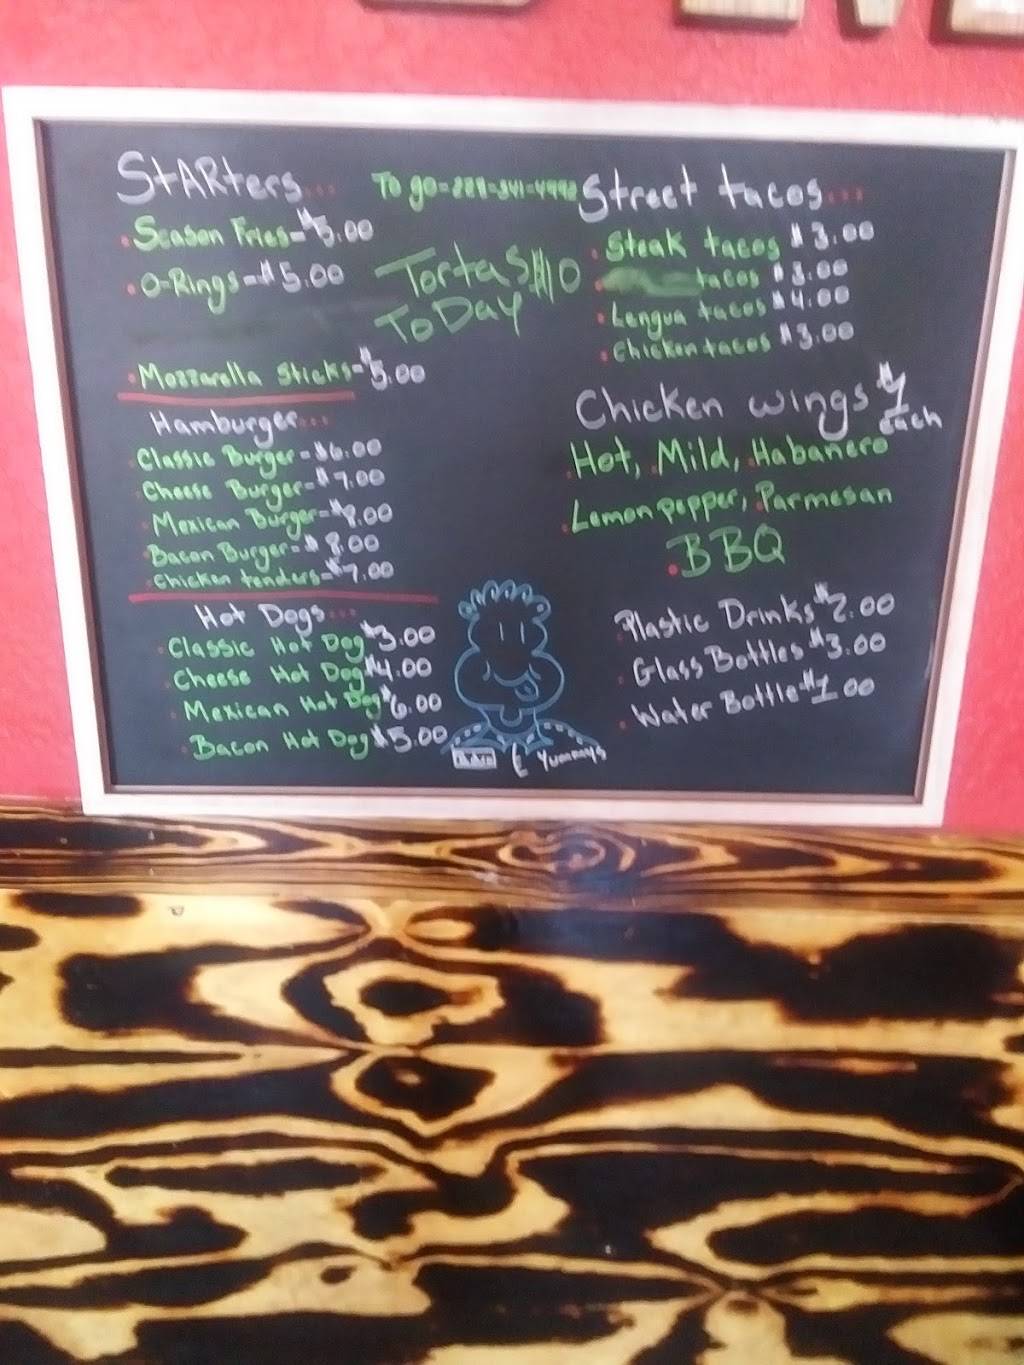 StARters...
Season Fries=$5.00
O-Rings=$5.00
Mozzarella Sticks=$5.00
Hamburger...
Classic Burger=$6.00
Cheese Burger=$7.00
Mexican Burger=$8.00
Bacon Burger=$8.00
Chicken tenders=$7.00
Hot Dogs...
Classic Hot Dog $3.00
Cheese Hot Dog $4.00
Mexican Hot Dog $6.00
Bacon Hot Dog $5.00
To go=
TortaS $10
ToDAY
Yummys
Street tacos...
Steak tacos $3.00
tacos $3.00
Lengua tacos $4.00
Chicken tacos $3.00
Chicken wings $1
each
Hot, Mild, Habanero
Lemon pepper, Parmesan
BBQ
Plastic Drinks $2.00
Glass Bottles $3.00
Water Bottle $1.00